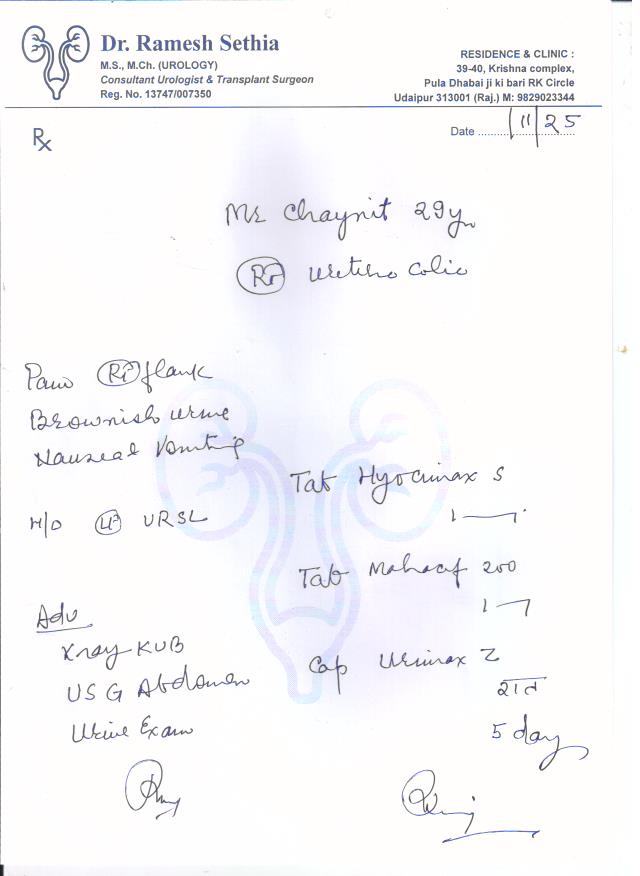 Dr. Ramesh Sethia
M.S., M.Ch. (UROLOGY)
Consultant Urologist & Transplant Surgeon
Reg. No. 13747/007350
RESIDENCE & CLINIC :
39-40, Krishna complex,
Pula Dhabai ji ki bari RK Circle
Udaipur 313001 (Raj.) M: 9829023344
Rx
Date .......1/11/25
Mr Chaynit 29y
Rt Uretero Colic
Pain Rt flank
Brownish urine
Nausea & Vomiting
H/O Lt URSL
Tab Hyocimax S
1——1
Tab Mahacef 200
1—1
Adv
Xray KUB
USG Abdomen
Urine Exam
Cap Urimax
रात
5 day